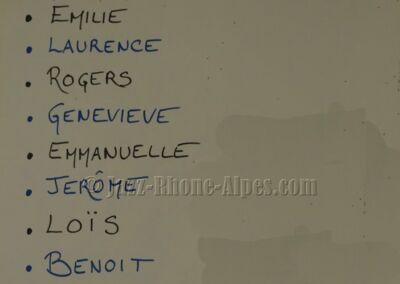 • EMILIE
• LAURENCE
• ROGERS
• GENEVIEVE
• EMMANUELLE
• JERÔME
© Jazz-Rhone-Alpes.com
• LOÏS
• BENOIT